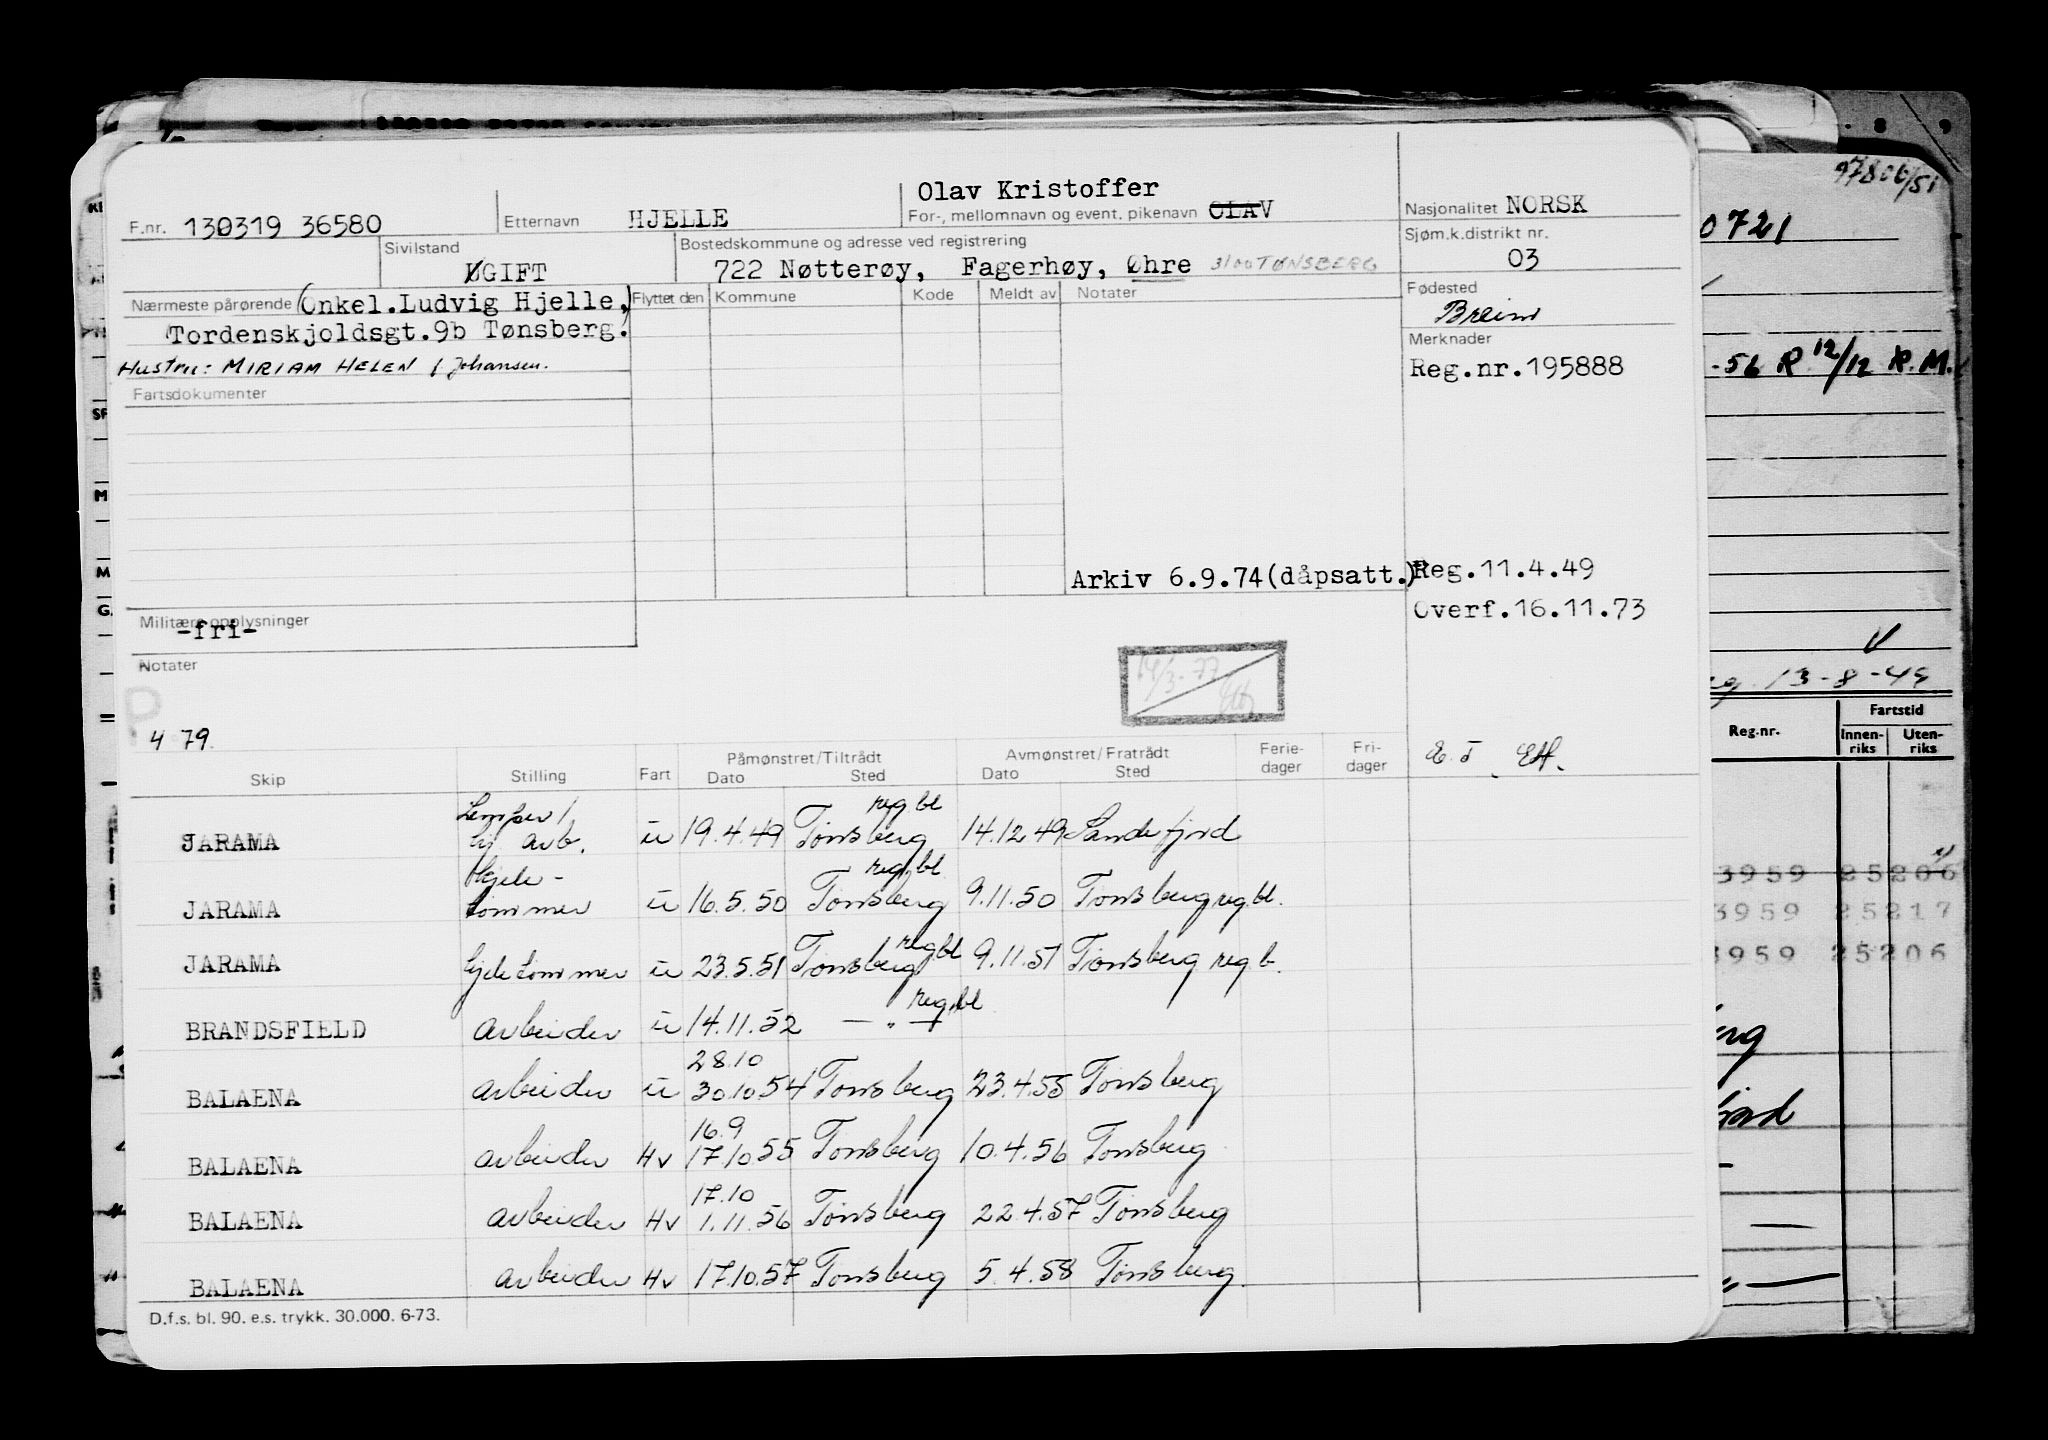 97806/51
0721
Olav Kristoffer
F.nr. 130319 36580 Etternavn HJELLE For-, mellomnavn og event. pikenavn OLAV Nasjonalitet NORSK
Sivilstand UGIFT Bostedskommune og adresse ved registrering Sjøm.k.distrikt nr.
722 Nøtterøy, Fagerhøy, Øhre 3100 TØNSBERG 03
Nærmeste pårørende (Onkel.Ludvig Hjelle, Flyttet den Kommune Kode Meldt av Notater Fødested
Tordenskjoldsgt.9b Tønsberg.) Breim
Merknader
Hustru: MIRIAM HELEN f. Johansen. Reg.nr.195888
-56 R. 12/12 R.M.
Fartsdokumenter
Arkiv 6.9.74(dåpsatt.) Reg.11.4.49
Overf.16.11.73
Militære opplysninger
-fri-
Notater
14/3-77
P
4 79.
13-8-49
Reg.nr. Fartstid
Innen-riks Uten-riks
Skip Stilling Fart Påmønstret/Tiltrådt Dato Sted Avmønstret/Fratrådt Dato Sted Ferie-dager Fri-dager E.T. EH.
JARAMA Lemper/ hj. arb. u 19.4.49 Tønsberg reg bl 14.12.49 Sandefjord
JARAMA Hjele-tømmer u 16.5.50 Tønsberg reg.bl 9.11.50 Tønsberg reg.bl.
JARAMA hjeletømmer u 23.5.51 Tønsberg reg bl 9.11.51 Tønsberg reg.b.
BRANDSFIELD arbeider u 14.11.52 — " — reg.bl
BALAENA arbeider u 28.10 30.10.54 Tønsberg 23.4.55 Tønsberg
BALAENA arbeider Hv 16.9 17.10.55 Tønsberg 10.4.56 Tønsberg
BALAENA arbeider Hv 17.10 1.11.56 Tønsberg 22.4.57 Tønsberg
BALAENA arbeider Hv 17.10.57 Tønsberg 5.4.58 Tønsberg.
D.f.s. bl. 90. e.s. trykk. 30.000. 6-73.
3959 25206
3959 25217
3959 25206